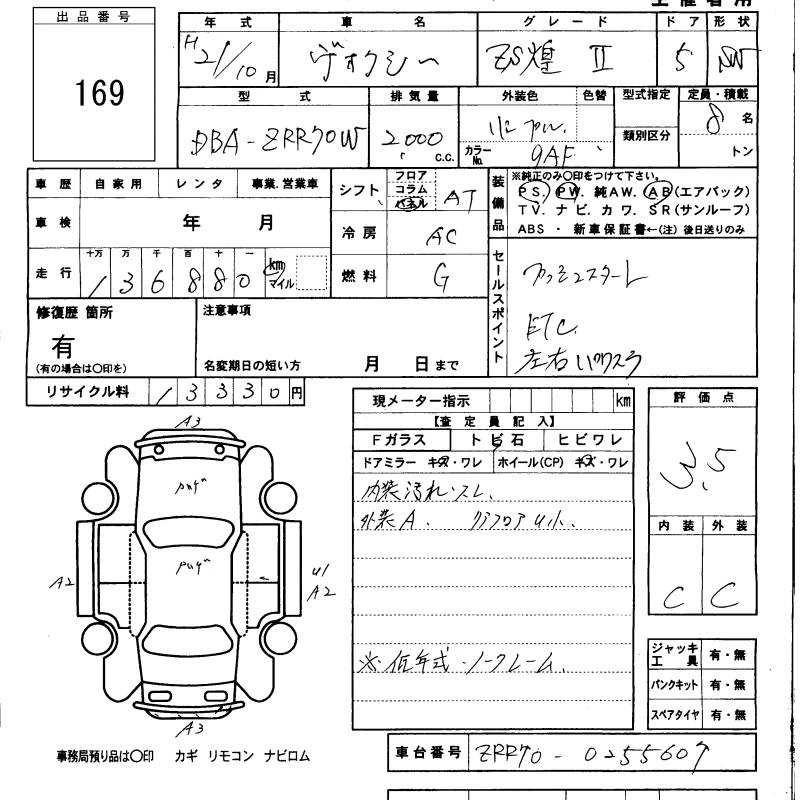 出品番号
169
年式 車名 グレード ドア 形状
H21/10月 ヴォクシー ZS煌 II 5 SW
型式 排気量 外装色 色替 型式指定 定員・積載
DBA-ZRR70W 2000 c.c. カラーNo. 9AF 類別区分 8名
トン
車歴 自家用 レンタ 事業.営業車
車検 年 月
走行 十万 万 千 百 十 一 km マイル
136880
シフト フロア コラム パネル AT
冷房 AC
燃料 G
装備品
※純正のみ〇印をつけて下さい。
PS. PW. 純AW. AB(エアバック)
TV. ナビ. カワ. SR(サンルーフ)
ABS ・ 新車保証書←(注) 後日送りのみ
セールスポイント
プッシュスタート
ETC.
左右パワスラ
修復歴 箇所
有
(有の場合は〇印を)
注意事項
名変期日の短い方 月 日まで
リサイクル料 13330円
現メーター指示 km
【査定員記入】
Fガラス トビ石 ヒビワレ
ドアミラー キズ・ワレ ホイール(CP) キズ・ワレ
内装汚れ.スレ.
外装A. リアフロアU小.
※低年式.ノークレーム.
評価点
3.5
内装 外装
C C
ジャッキ工具 有・無
パンクキット 有・無
スペアタイヤ 有・無
A3
A2
U1
A2
A3
事務局預り品は〇印 カギ リモコン ナビロム
車台番号 ZRR70-0255607